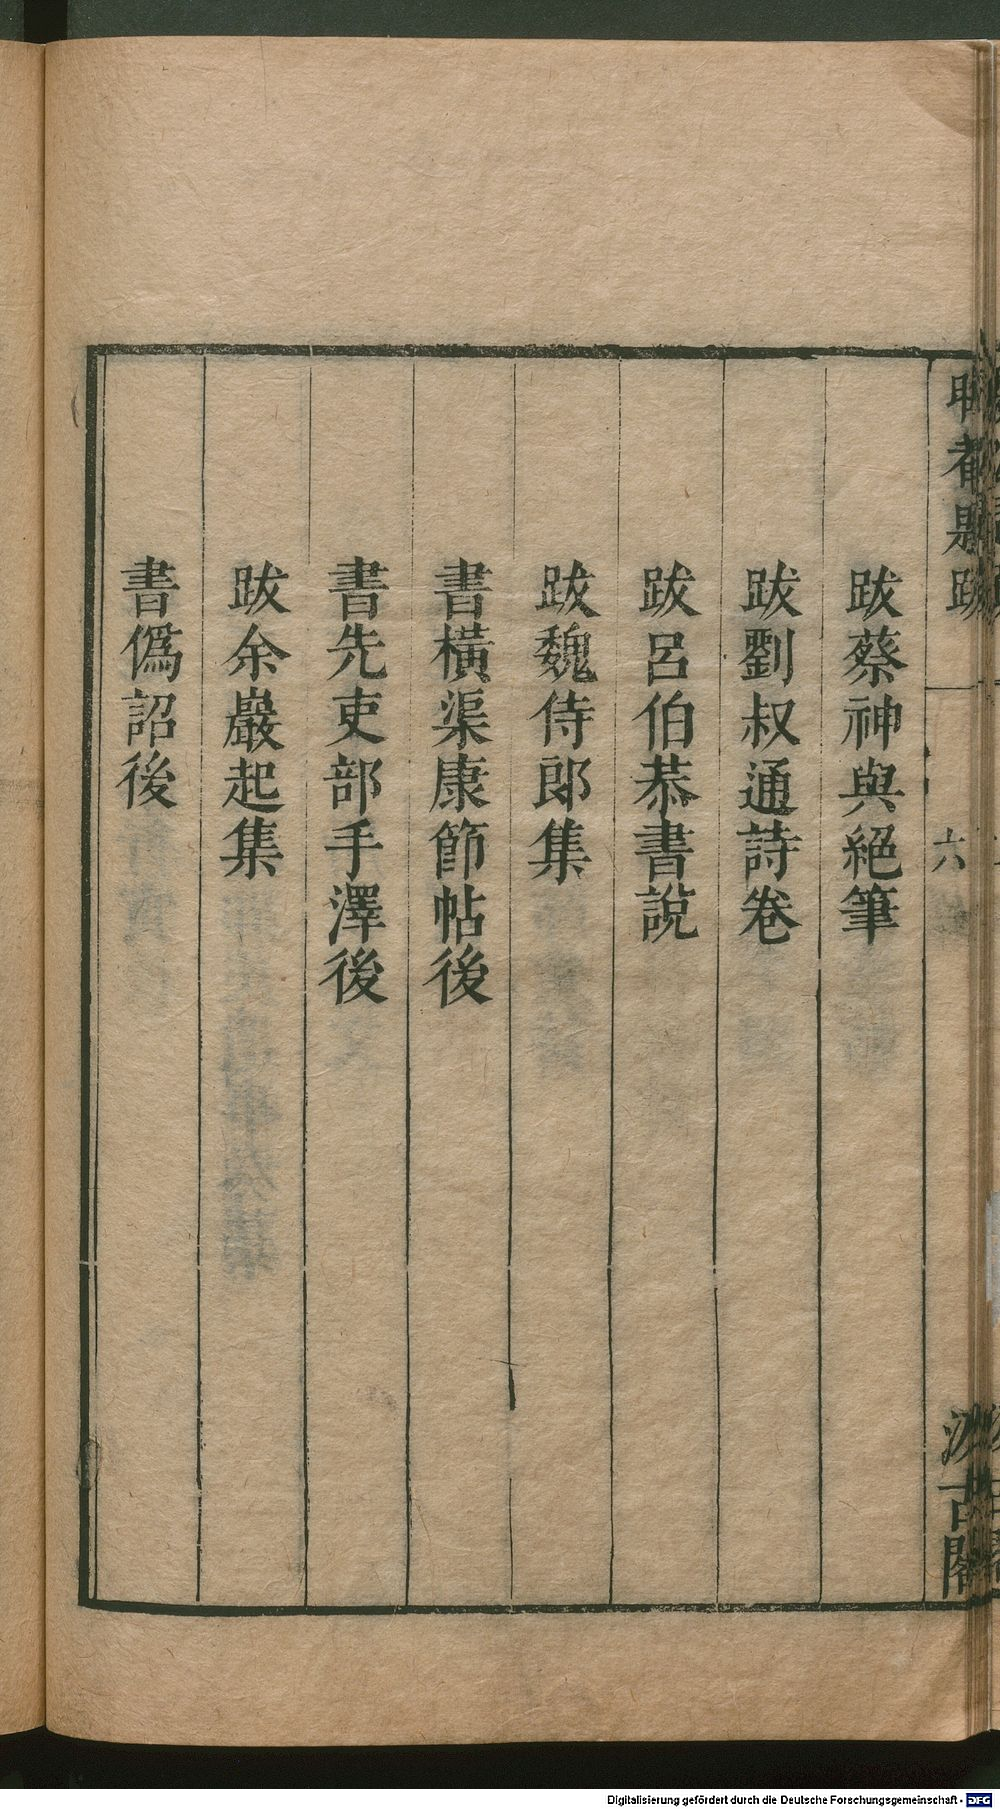 跋蔡神與絕筆
跋劉叔通詩卷
跋呂伯恭書說
跋魏侍郎集
書橫渠康節帖後
書先吏部手澤後
跋余巖起集
書僞詔後
六
汲古閣
Digitalisierung gefördert durch die Deutsche Forschungsgemeinschaft - DFG